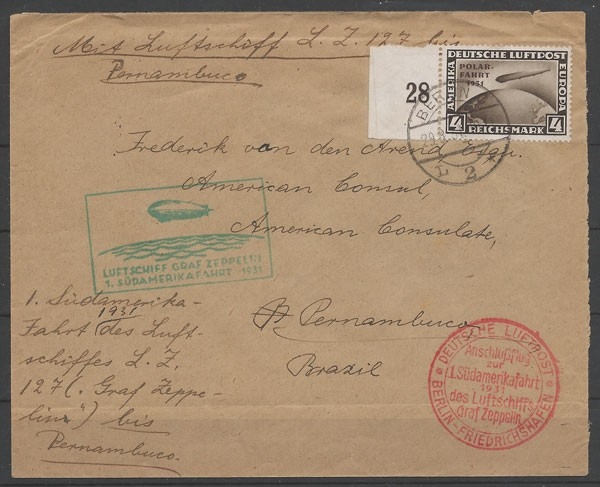 Mit Luftschiff L. Z. 127 bis
Pernambuco
28
DEUTSCHE LUFTPOST
AMERIKA
EUROPA
POLAR-
FAHRT
1931
4
REICHSMARK
4
BERLIN
L 2
Frederik van den Arend Esqu.
American Consul,
American Consulate,
Pernambuco
Brazil
LUFTSCHIFF GRAF ZEPPELIN
1. SÜDAMERIKAFAHRT 1931
1. Südamerika-
1931
Fahrt des Luft-
schiffes L. Z.
127 („Graf Zeppe-
lin") bis
Pernambuco.
DEUTSCHE LUFTPOST
Anschlußflug
zur
1. Südamerikafahrt
1931
des Luftschiffs
Graf Zeppelin
BERLIN-FRIEDRICHSHAFEN